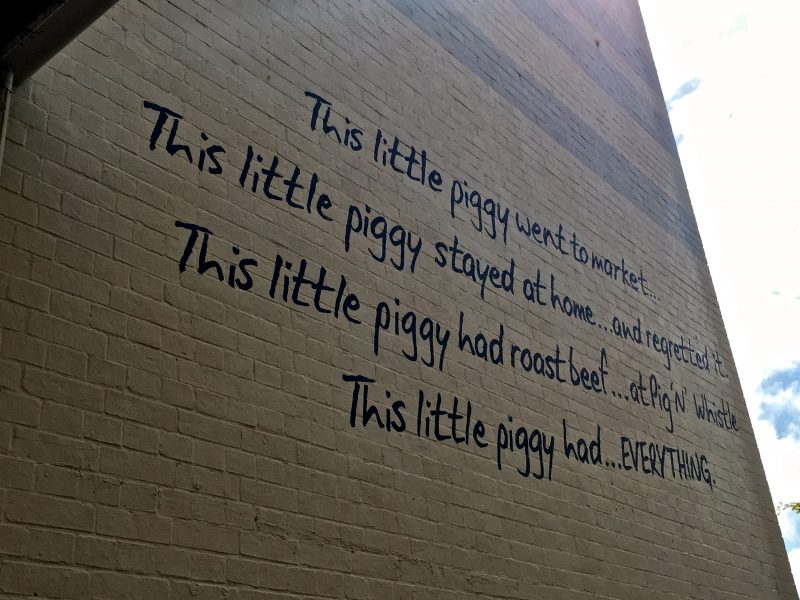 This little piggy went to market...
This little piggy stayed at home...and regretted it.
This little piggy had roast beef...at Pig 'N' Whistle
This little piggy had...EVERYTHING.